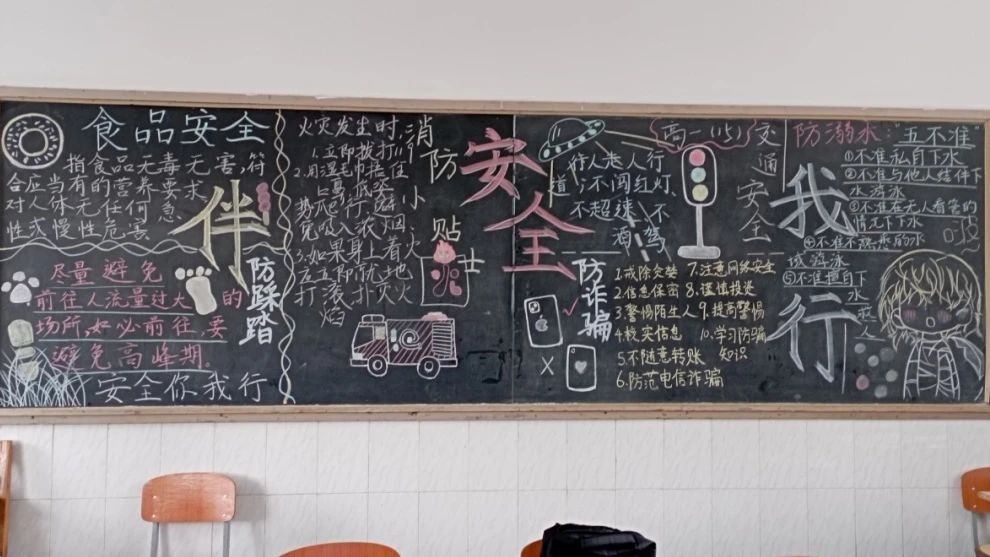 食品安全
指食品无毒无害,符
合应当有的营养要求
对人体无任何急
性或慢性危害
伴
尽量避免
前往人流量过大的
场所,如必前往,要
避免高峰期.
防踩踏
安全你我行
消防小贴士
火灾发生时,
1.立即拨打119
2.用湿毛巾捂住
安全
高一(15)
交通安全
行人走人行
道;不闯红灯,
不超速 不
酒驾
防诈骗
1.戒除贪婪 7.注意网络安全
2.信息保密 8.谨慎投资
3.警惕陌生人 9.提高警惕
4.核实信息 10.学习防骗
5.不随意转账 知识
6.防范电信诈骗
我行
防溺水:"五不准"
①不准私自下水
②不准与他人结伴下
水游泳
③不准在无人看管的
情况下下水
④不准不熟悉的水
域游泳
⑤不准擅自下
水救人